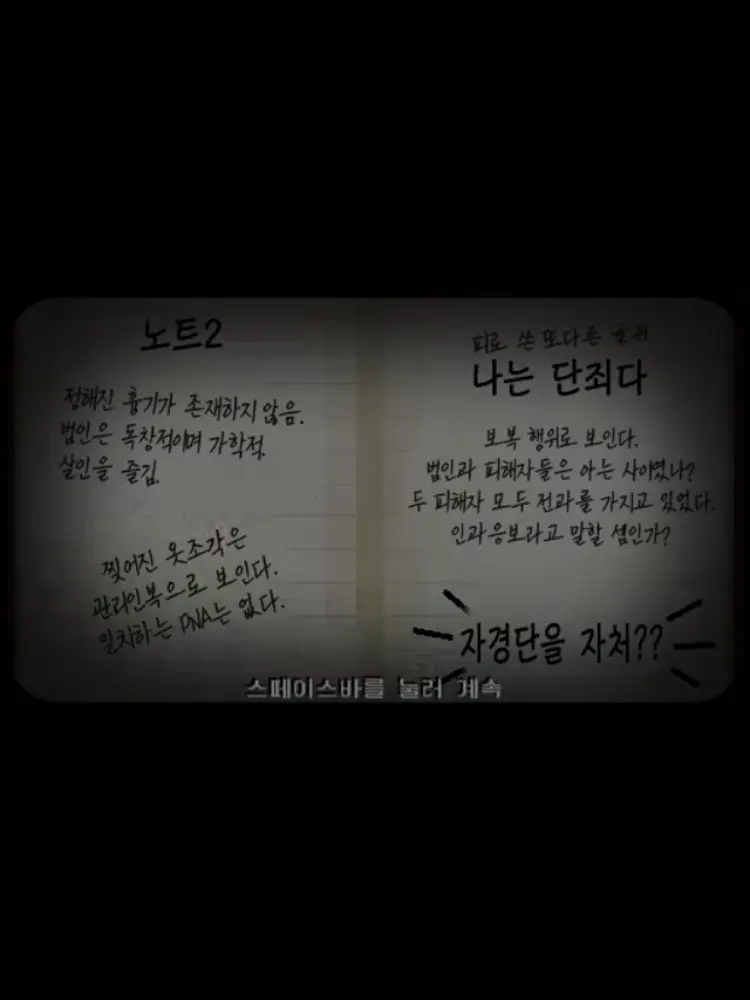 노트2
정해진 흉기가 존재하지 않음.
범인은 독창적이며 가학적.
살인을 즐김.
찢어진 옷조각은
관리인복으로 보인다.
일치하는 DNA는 없다.
피로 쓴 또다른
나는 단죄다
보복 행위로 보인다.
범인과 피해자들은 아는 사이였나?
두 피해자 모두 전과를 가지고 있었다.
인과응보라고 말할 셈인가?
자경단을 자처??
스페이스바를 눌러 계속